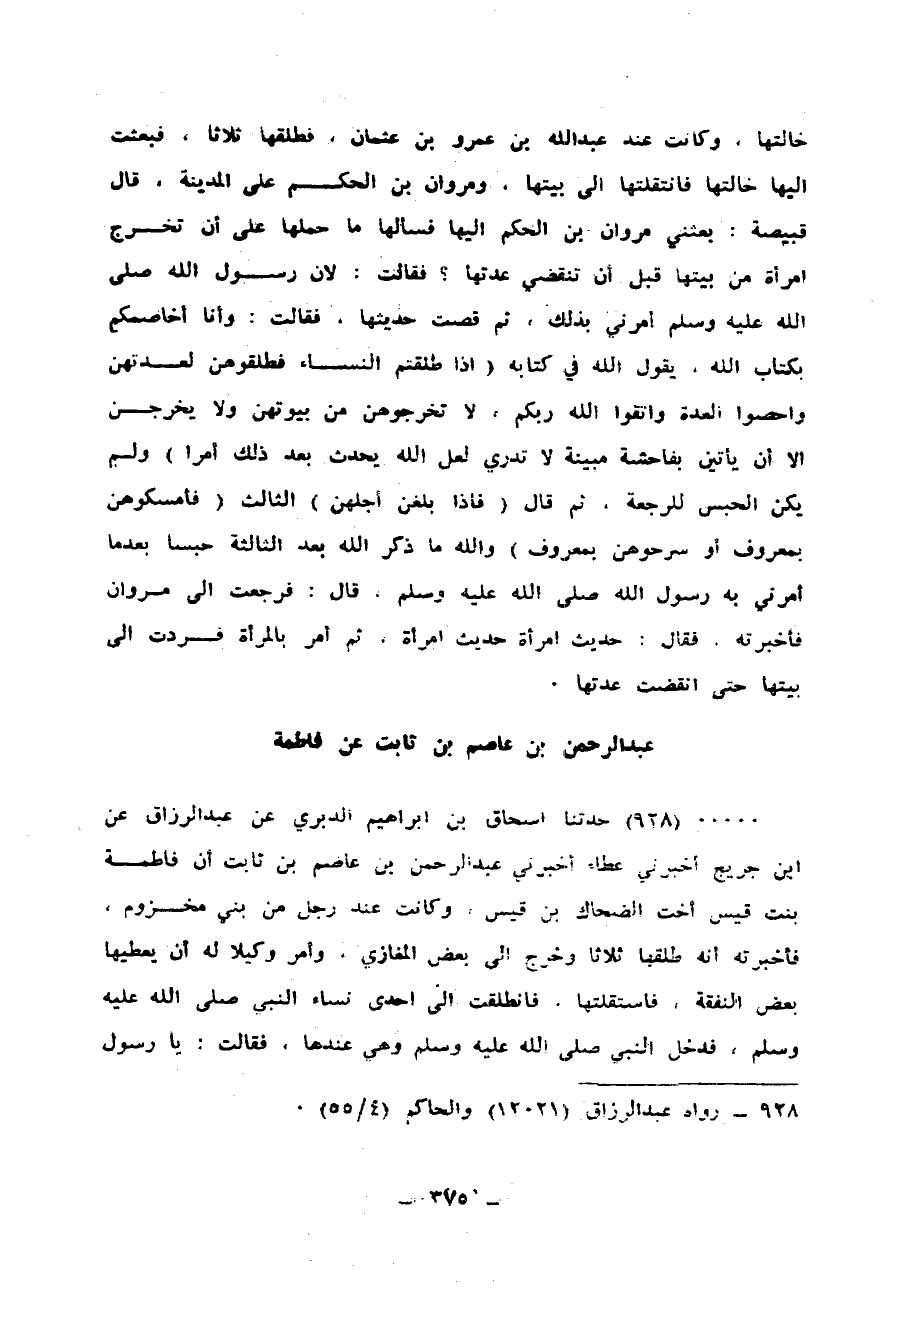 خالتها ، وكانت عند عبدالله بن عمرو بن عثمان ، فطلقها ثلاثا ، فبعثت
اليها خالتها فانتقلتها الى بيتها ، ومروان بن الحكم على المدينة ، قال
قبيصة : بعثني مروان بن الحكم اليها فسألها ما حملها على أن تخرج
امرأة من بيتها قبل أن تنقضي عدتها ؟ فقالت : لان رسول الله صلى
الله عليه وسلم أمرني بذلك ، ثم قصت حديثها ، فقالت : وأنا أخاصمكم
بكتاب الله ، يقول الله في كتابه ( اذا طلقتم النساء فطلقوهن لعدتهن
واحصوا العدة واتقوا الله ربكم ، لا تخرجوهن من بيوتهن ولا يخرجن
الا أن يأتين بفاحشة مبينة لا تدري لعل الله يحدث بعد ذلك أمرا ) ولم
يكن الحبس للرجعة ، ثم قال ( فاذا بلغن أجلهن ) الثالث ( فأمسكوهن
بمعروف أو سرحوهن بمعروف ) والله ما ذكر الله بعد الثالثة حبسا بعدما
أمرني به رسول الله صلى الله عليه وسلم ، قال : فرجعت الى مروان
فأخبرته ، فقال : حديث امرأة حديث امرأة ، ثم أمر بالمرأة فردت الى
بيتها حتى انقضت عدتها ٠
عبدالرحمن بن عاصم بن ثابت عن فاطمة
٠٠٠٠٠ (٩٢٨) حدثنا اسحاق بن ابراهيم الدبري عن عبدالرزاق عن
ابن جريج أخبرني عطاء أخبرني عبدالرحمن بن عاصم بن ثابت أن فاطمة
بنت قيس أخت الضحاك بن قيس ، وكانت عند رجل من بني مخزوم ،
فأخبرته أنه طلقها ثلاثا وخرج الى بعض المغازي ، وأمر وكيلا له أن يعطيها
بعض النفقة ، فاستقلتها ، فانطلقت الى احدى نساء النبي صلى الله عليه
وسلم ، فدخل النبي صلى الله عليه وسلم وهي عندها ، فقالت : يا رسول
٩٢٨ ـ رواه عبدالرزاق (١٢٠٢١) والحاكم (٥٥/٤) ٠
ـ ٣٧٥ ـ